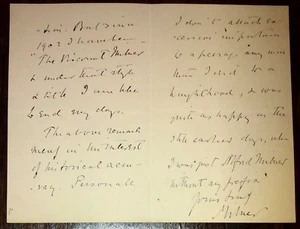 -tion. But since
1902 I have been
The Viscount Milner
& under that style
& title I am likely
to end my days.
The above remarks
merely in the interest
of historical accu-
racy. Personally
I don't attach ex-
cessive importance
to a peerage any more
than I did to a
knighthood, & was
quite as happy in the
still earlier days, when
I was just Alfred Milner
without any prefix.
Yours truly
Milner